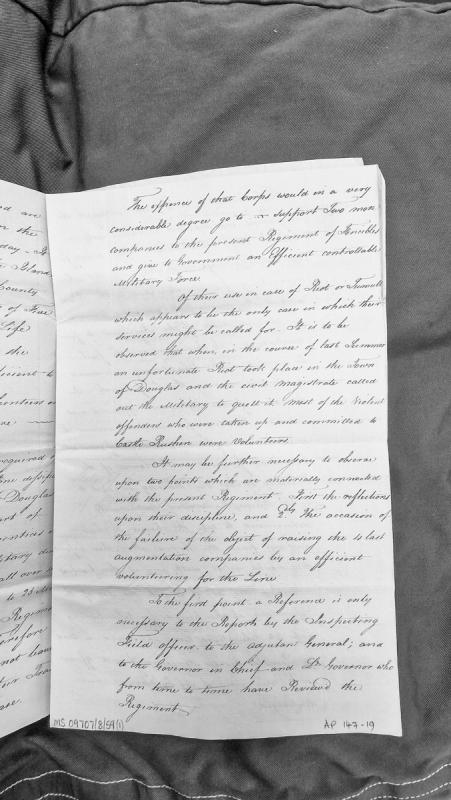 ed are
n the
day - It
Island
County
of Five
Life
the
icient to
unteers or
re
required
ine
Douglas
ent of
untries or
itary
all over
to 28
Regimen
erefore
not leave
ase.
The expence of that Corps would in a very
considerable degree go to support Two more
companies to the present Regiment of Fencibles
and give to Government an Efficient controllable
Military Force
Of their use in case of Riot or Tumult
which appears to be the only case in which their
services might be called for. It is to be
observed that when, in the course of last Summer
an unfortunate Riot took place in the Town
of Douglas and the civil magistrate called
out the Military to quell it, most of the Violent
offenders who were taken up and committed to
Castle Rushen were Volunteers.
It may be further necessary to observe
upon two points which are materially connected
with the present Regiment. First the reflections
upon their discipline, and 2dly The occasion of
the failure of the object of raising the 4 last
augmentation companies by an efficient
volunteering for the Line
To the first point a Reference is only
necessary to the Reports by the Inspecting
Field officer to the adjutan General; and
to the Governor in Chief and Lt Governor who
from time to time have Review'd the
Regiment
MS 09707/8/59(1)
AP 147-19